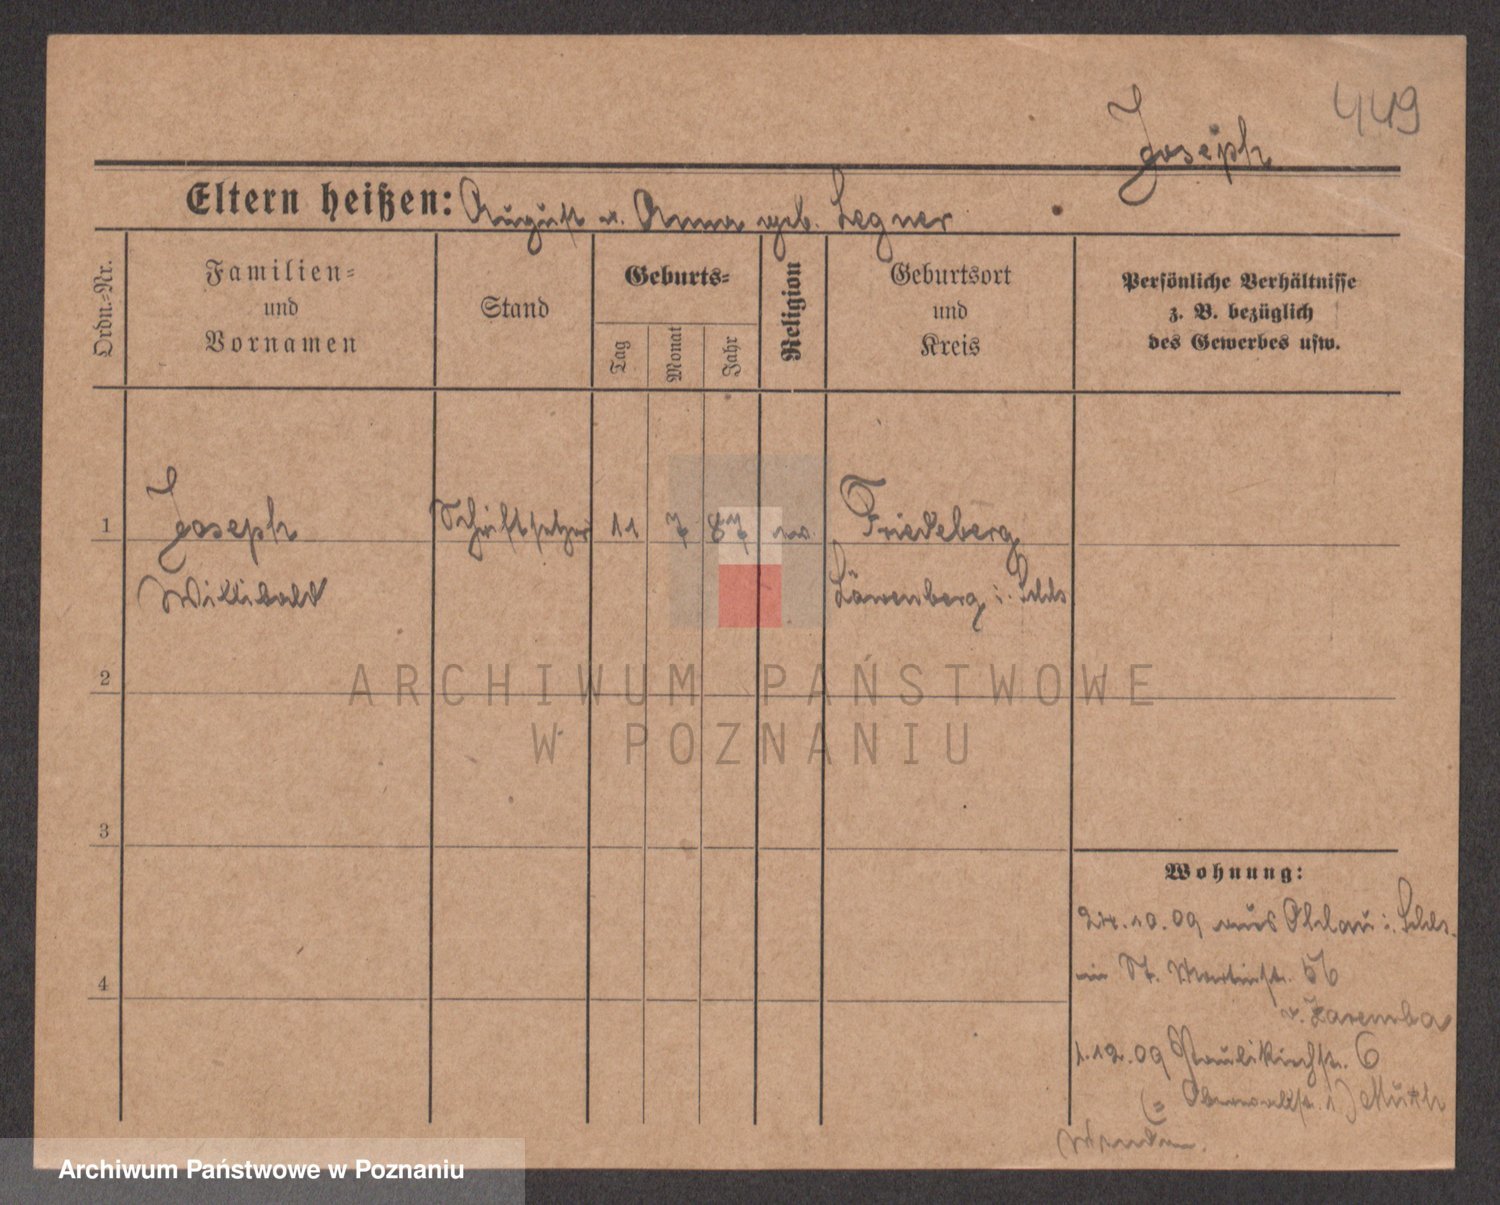 449
Joseph
Eltern heißen: August u. Anna geb. Legner
Ordn.-Nr.
Familien-
und
Vornamen
Stand
Geburts-
Tag
Monat
Jahr
Religion
Geburtsort
und
Kreis
Persönliche Verhältnisse
z. B. bezüglich
des Gewerbes usw.
1
Joseph Schriftsetzer 11 7 87 Friedeberg
Willibald Löwenberg i. Schls
2
ARCHIWUM PAŃSTWOWE
W POZNANIU
3
Wohnung:
10.09 aus Ohlau i. Schls.
in St. Martinstr. 56
b. Zaremba
1.12.09 Paulikirchstr. 6
4
Archiwum Państwowe w Poznaniu